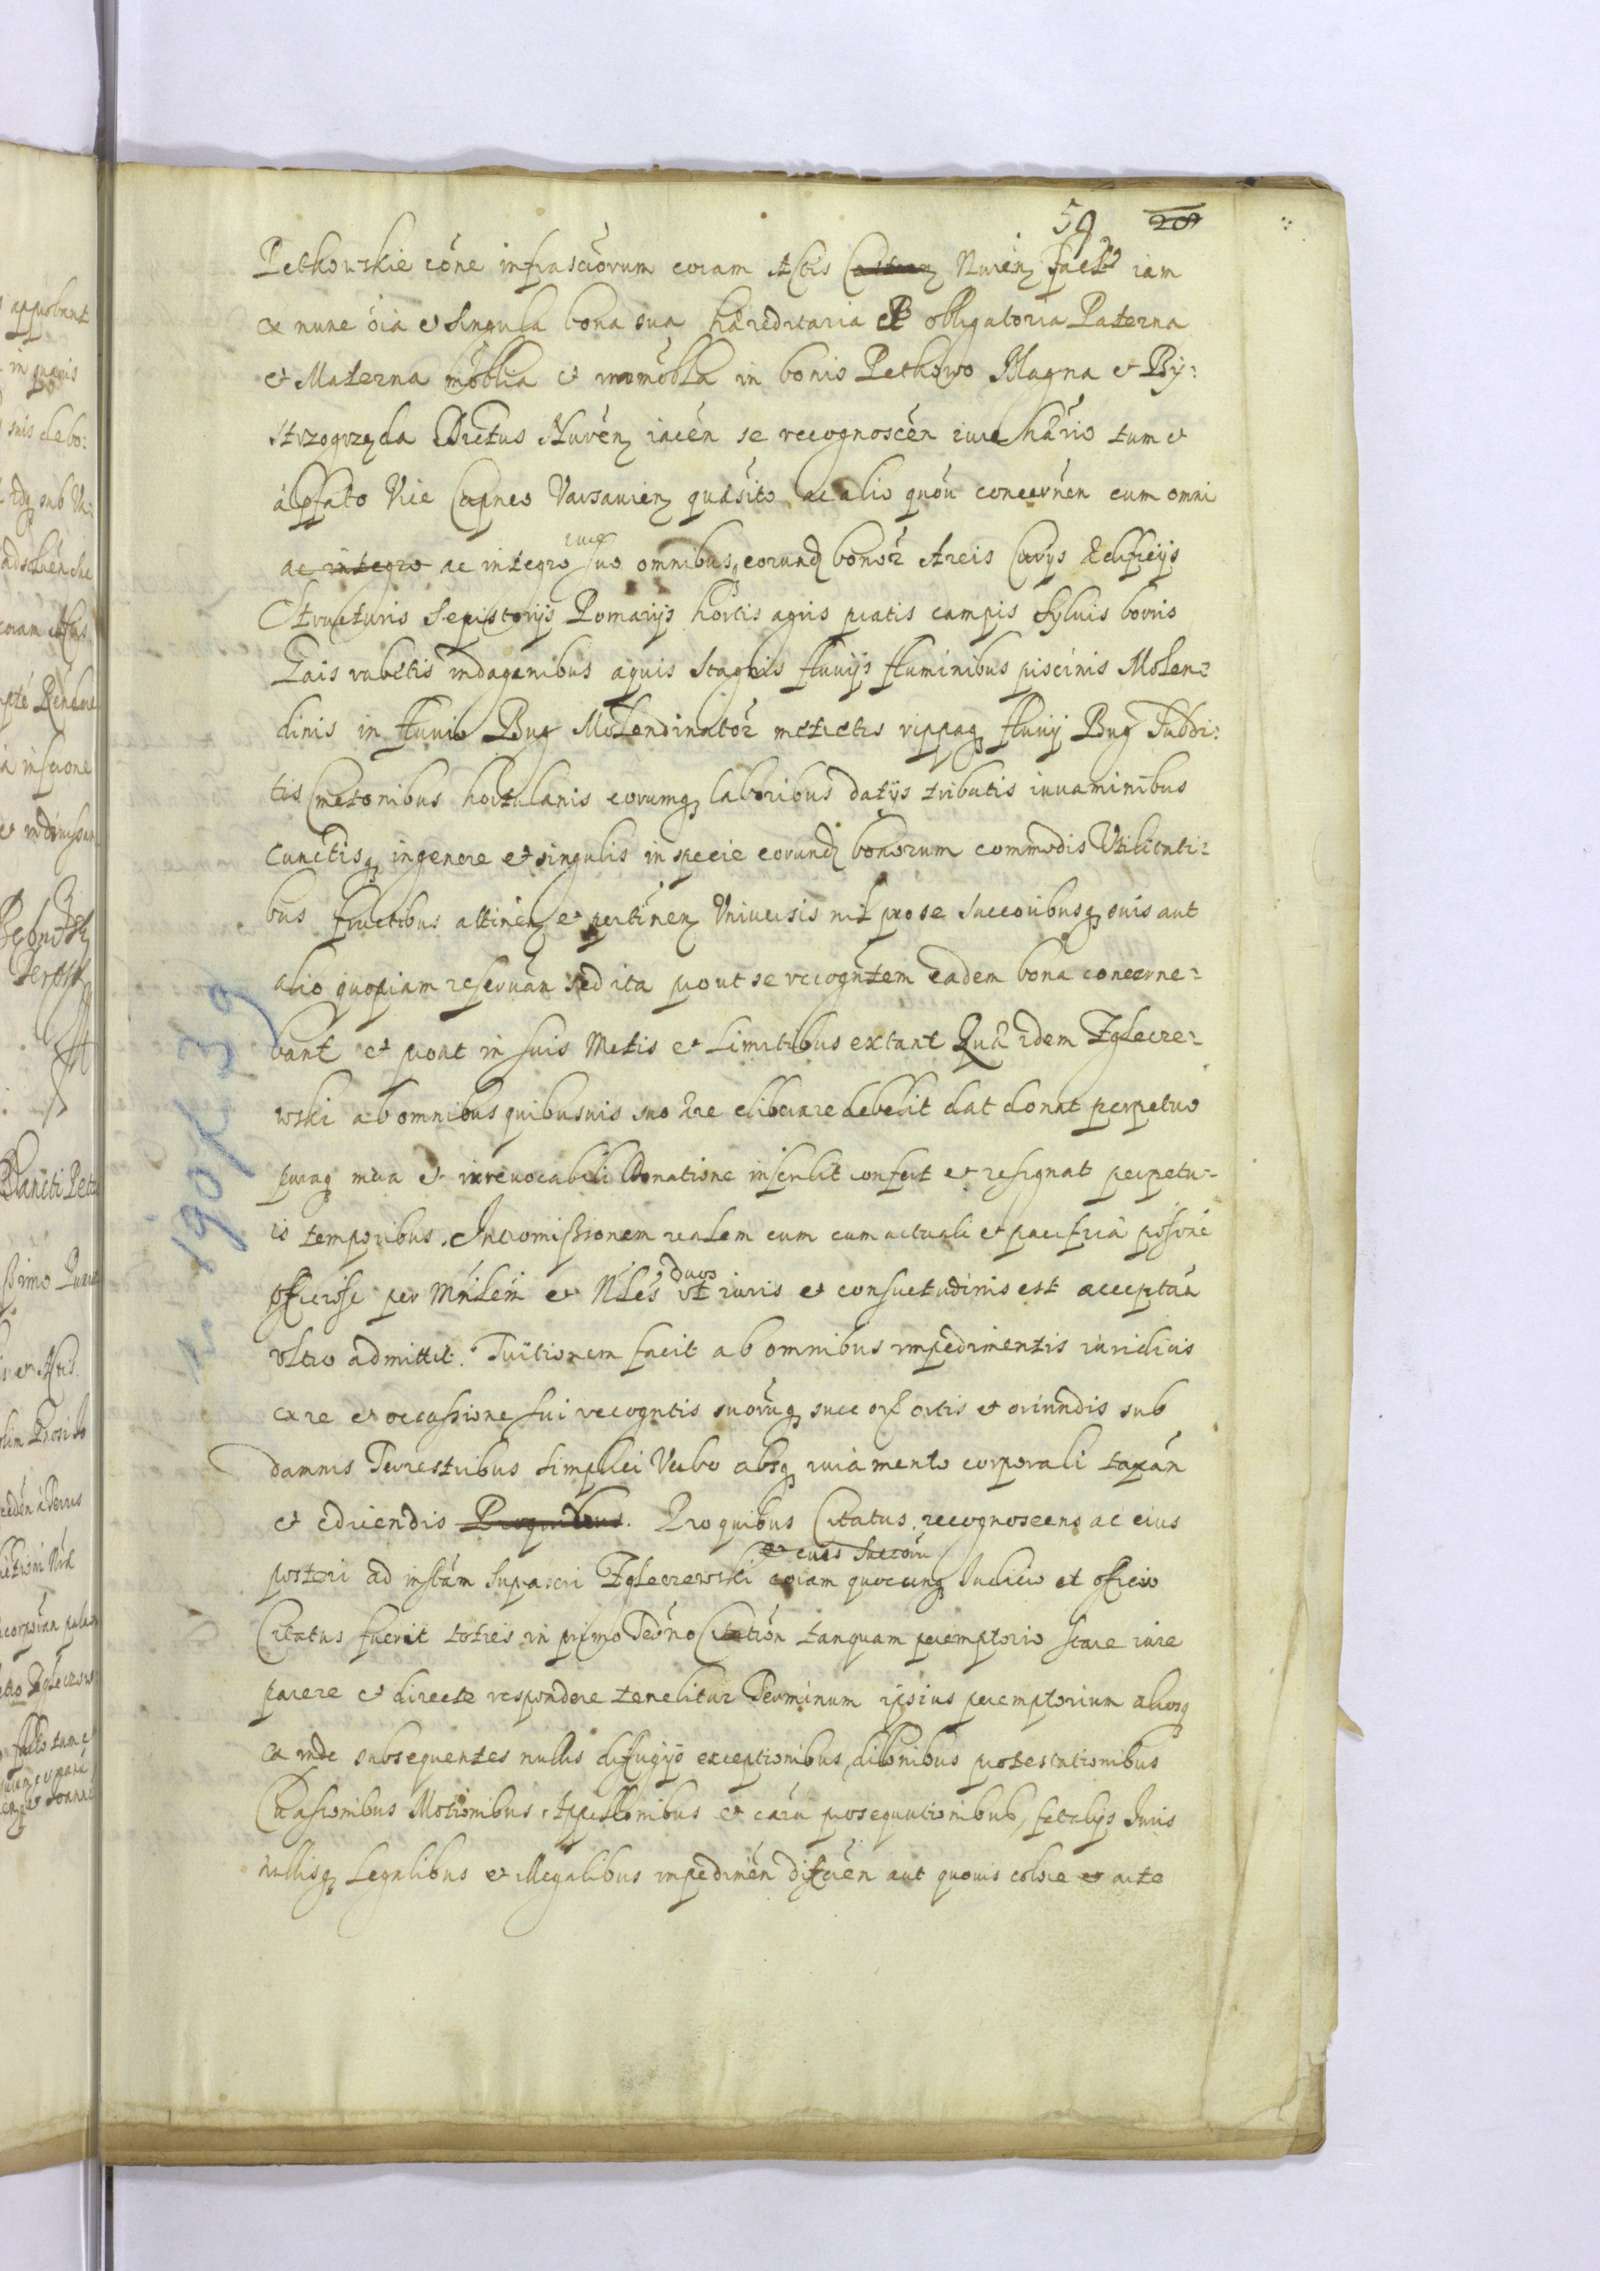 59 208
Pethowskie cone infrascriorum coram Actis Castren Nuren facto iam
ex nunc oia et singula bona sua haereditaria et obligatoria Paterna
et Materna moblia et immobla in bonis Pethowo Magna et By:
strzogrzęda Dictus Nuren iacen se recognoscen iure hario tum et
a pfato Vice Capneo Varsavien quaesito ac alio quou concernen cum omni
ac integro ac integro iure suo omnibus eorund bonor Areis Curijs Edificijs
Structuris Sepistorijs Pomarijs hortis agris pratis campis Sylvis borris
Gais rubetis indaganibus aquis Stagnis fluvijs fluminibus piscinis Molen=
dinis in fluvio Bug Molendinator metretis rippaq fluvij Bug Subdi:
tis Cmetonibus hortulanis eorumq laboribus datijs tributis iuvaminibus
cunctisq in genere et singulis in specie eorund bonorum commodis Utilitati=
bus fructibus attinen et pertinen Universis nil pro se succoribusq suis aut
alio quopiam reservan sed ita prout se recogntem eadem bona concerne=
bant et prout in suis Metis et Limitibus extant Quae idem Zglecze=
wski ab omnibus quibusvis suo aere eliberare debebit dat donat perpetuo
puraq mera et irrevocabili Donatione inscribit confert et resignat perpetu-
is temporibus. Intromissionem realem cum cum actuali et pacifica possone
officiose per Mnlem et Nles duos ut iuris et consuetudinis est acceptan
ultro admittit. Tuitionem facit ab omnibus impedimentis iuridicis
ex re et occassione sui recogntis suoruq succor ortis et oriundis sub
damnis Terrestribus simplici Verbo absq iuramento corporali taxan
et edicendis Pro quibus. Pro quibus Citatus recognoscens ac eius
postori ad instam suprascri Zgleczewski et eius succoru coram quocunq Iudicio et officio
Citatus fuerit toties in primo Termno Citation tanquam peremptorio stare iure
parere et directe respondere tenebitur Terminum ipsius peremptorium aliosq
ex inde subsequentes nullis difugijs exceptionibus dilonibus protestationibus
Evasionibus Motionibus Appellonibus et earu prosequutionibus, fatalijs Iuris
nullisq Legalibus et illegalibus impedimen differen aut quovis colore et arte
r. 1907 39